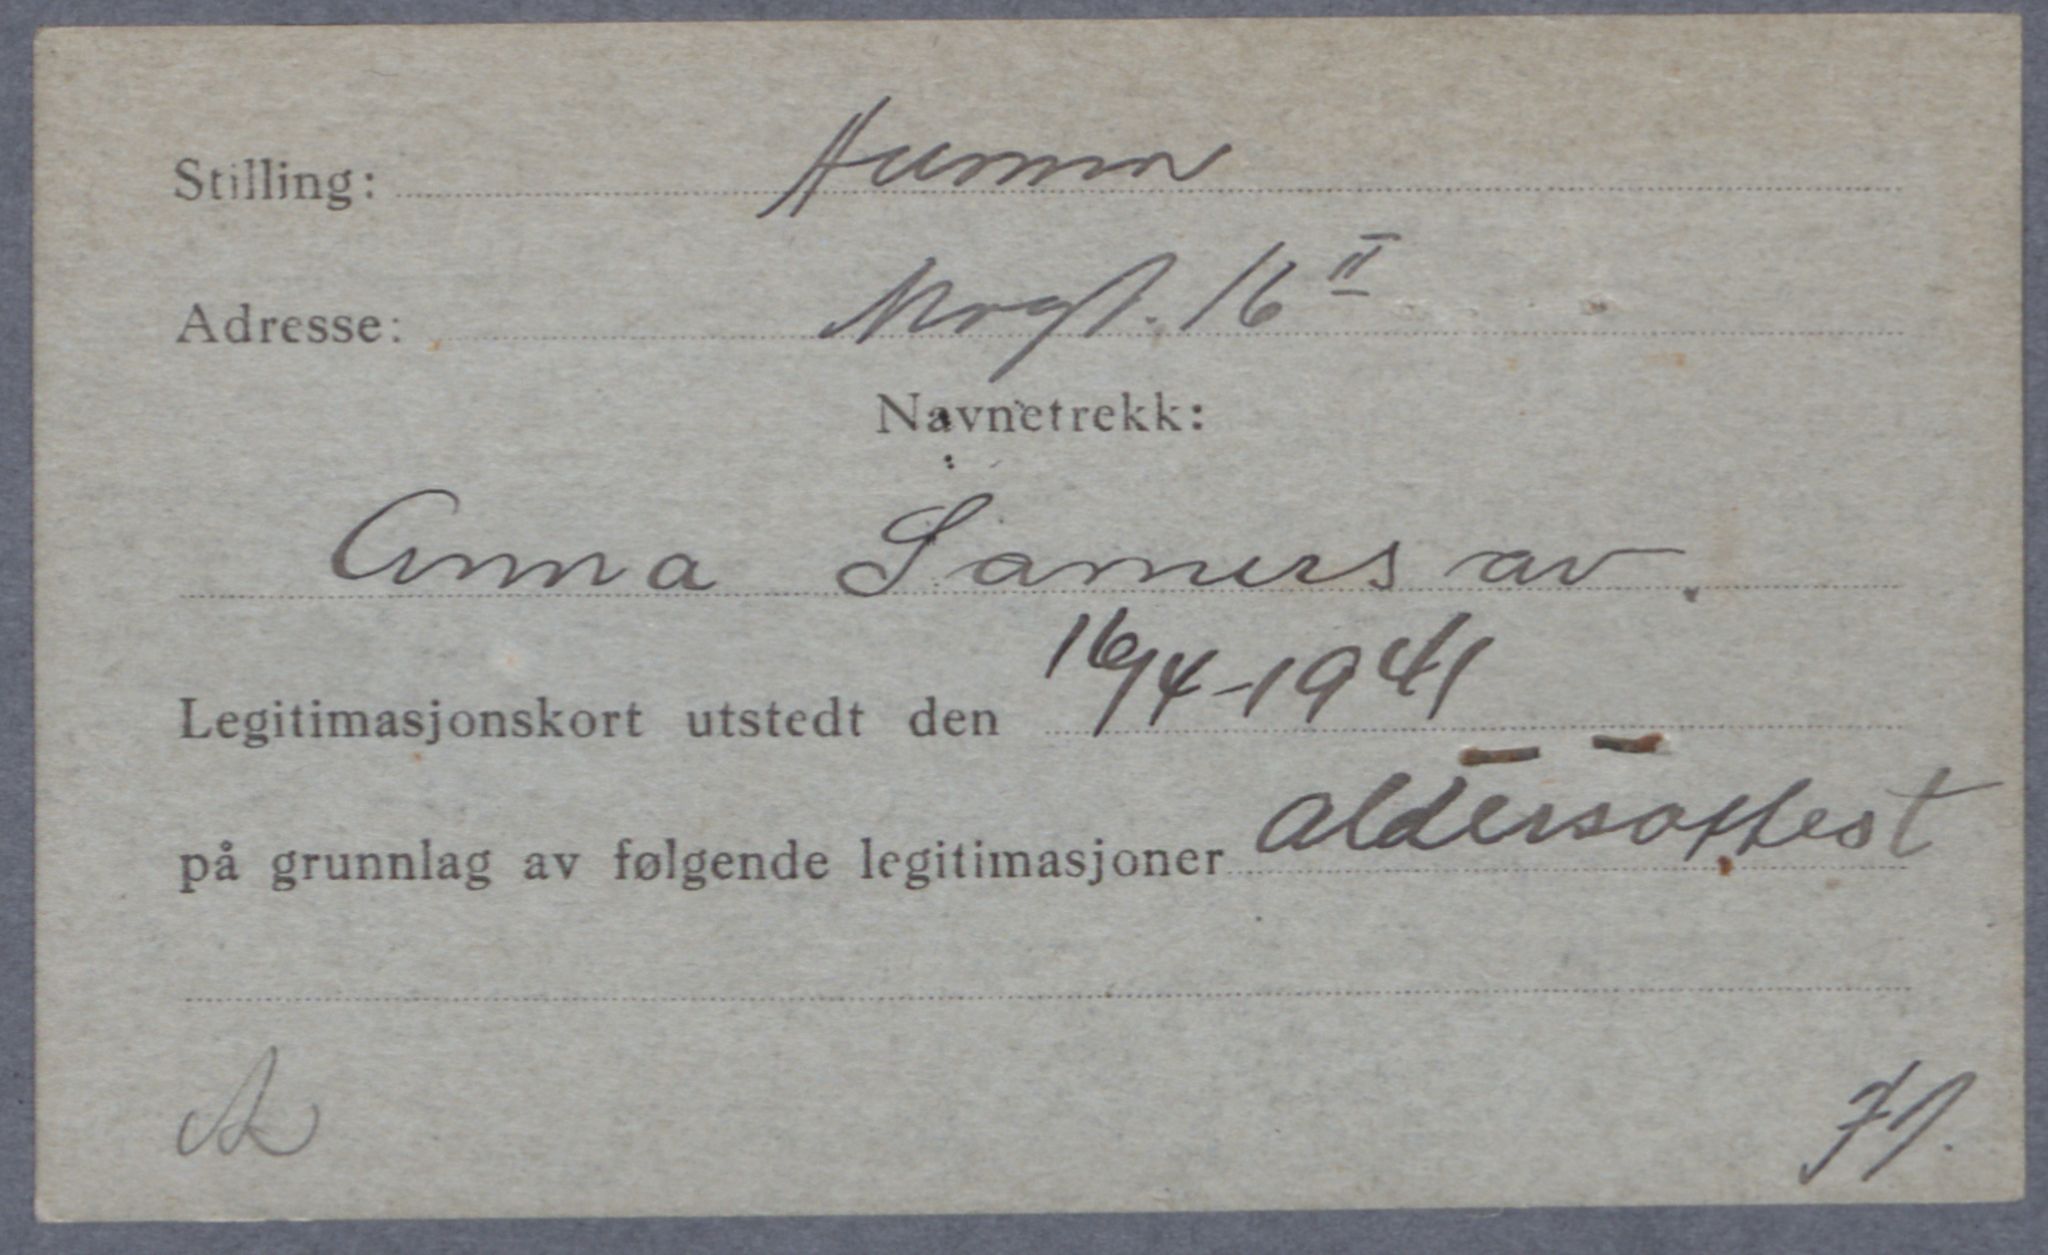 Stilling: Husmor
Adresse: 16 II
Navnetrekk:
Anna
Legitimasjonskort utstedt den 16/4-1941
på grunnlag av følgende legitimasjoner aldersattest